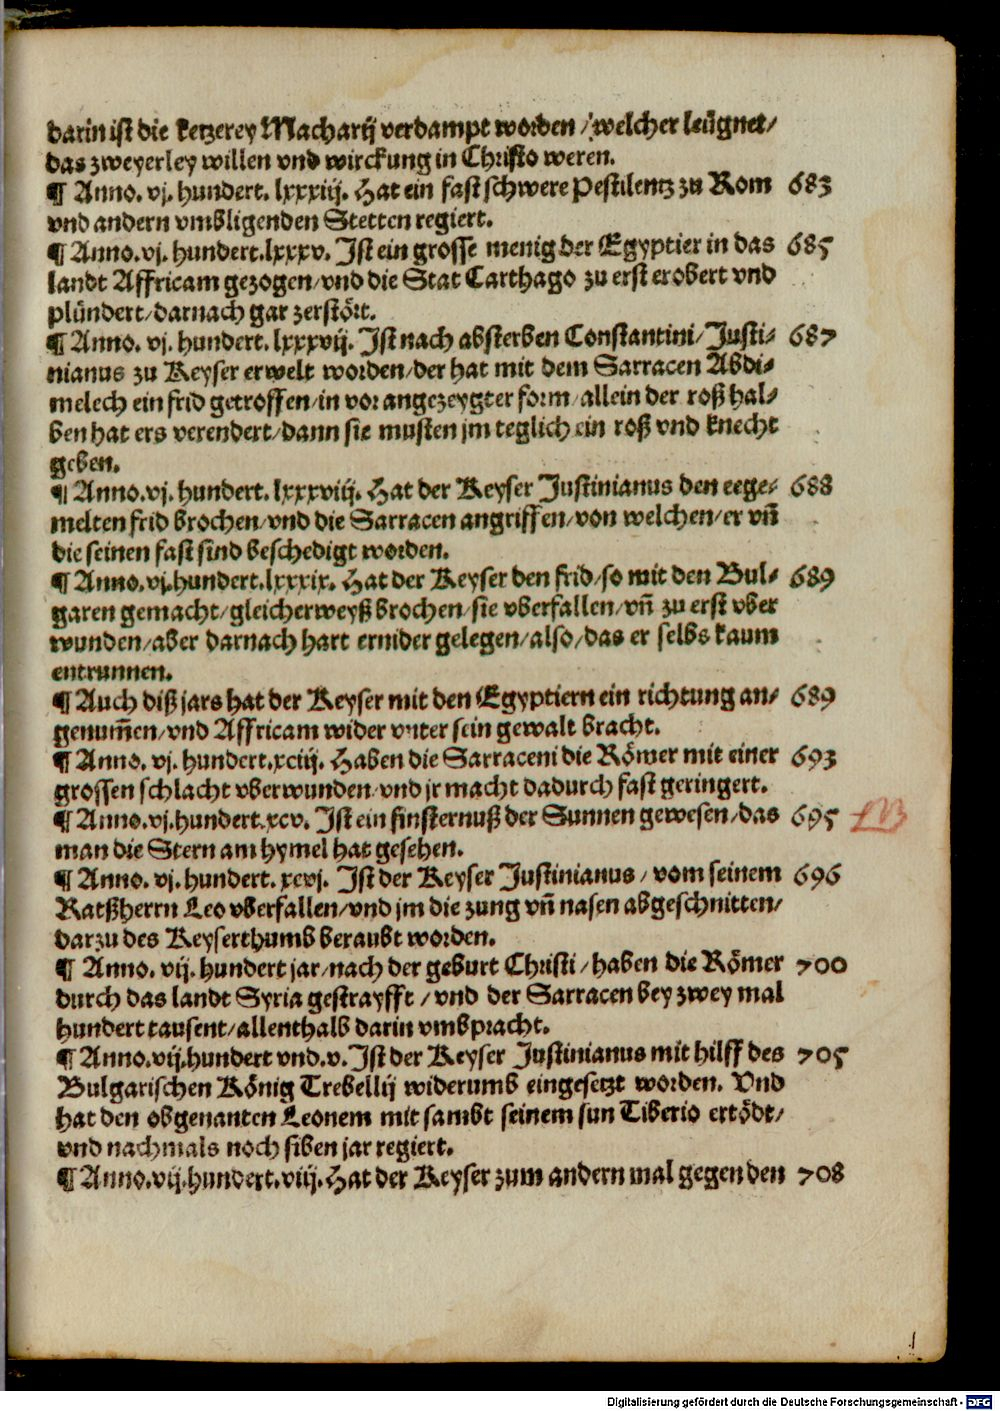 darin ist die ketzerey Macharij verdampt worden / welcher leügnet/
das zweyerley willen vnd wirckung in Christo weren.
¶ Anno. vj. hundert. lxxxiij. Hat ein fast schwere Pestilentz zu Rom 683
vnd andern vmbligenden Stetten regiert.
¶ Anno. vj. hundert. lxxxv. Ist ein grosse menig der Egyptier in das 685
landt Affricam gezogen/vnd die Stat Carthago zu erst erobert vnd
plündert/darnach gar zerstört.
¶ Anno. vj. hundert. lxxxvij. Ist nach absterben Constantini/Justi⸗ 687
nianus zu Keyser erwelt worden/der hat mit dem Sarracen Abdi⸗
melech ein frid getroffen/in vor angezeygter form/allein der roß hal⸗
ben hat ers verendert/dann sie musten jm teglich ein roß vnd knecht
geben.
¶ Anno. vj. hundert. lxxxviij. Hat der Keyser Justinianus den eege⸗ 688
melten frid brochen/vnd die Sarracen angriffen/von welchen/er vñ
die seinen fast sind beschedigt worden.
¶ Anno. vj. hundert. lxxxix. Hat der Keyser den frid/so mit den Bul⸗ 689
garen gemacht/gleicherweyß brochen/sie vberfallen/vñ zu erst vber
wunden/aber darnach hart ernider gelegen/also/das er selbs kaum
entrunnen.
¶ Auch diß jars hat der Keyser mit den Egyptiern ein richtung an⸗ 689
genum̃en/vnd Affricam wider vnter sein gewalt bracht.
¶ Anno. vj. hundert. xciij. Haben die Sarraceni die Römer mit einer 693
grossen schlacht vberwunden/vnd jr macht dadurch fast geringert.
¶ Anno. vj. hundert. xcv. Ist ein finsternuß der Sunnen gewesen/das 695
man die Stern am hymel hat gesehen.
¶ Anno. vj. hundert. xcvj. Ist der Keyser Justinianus / vom seinem 696
Ratßherrn Leo vberfallen/vnd jm die zung vñ nasen abgeschnitten/
darzu des Keyserthumb beraubt worden.
¶ Anno. vij. hundert jar/nach der geburt Christi / haben die Römer 700
durch das landt Syria gestrayfft / vnd der Sarracen bey zwey mal
hundert tausent/allenthalb darin vmbpracht.
¶ Anno. vij. hundert vnd. v. Ist der Keyser Justinianus mit hilff des 705
Bulgarischen König Trebellij widerumb eingesetzt worden. Vnd
hat den obgenanten Leonem mit sambt seinem sun Tiberio ertödt/
vnd nachmals noch siben jar regiert.
¶ Anno. vij. hundert. viij. Hat der Keyser zum andern mal gegen den 708
Digitalisierung gefördert durch die Deutsche Forschungsgemeinschaft - DFG